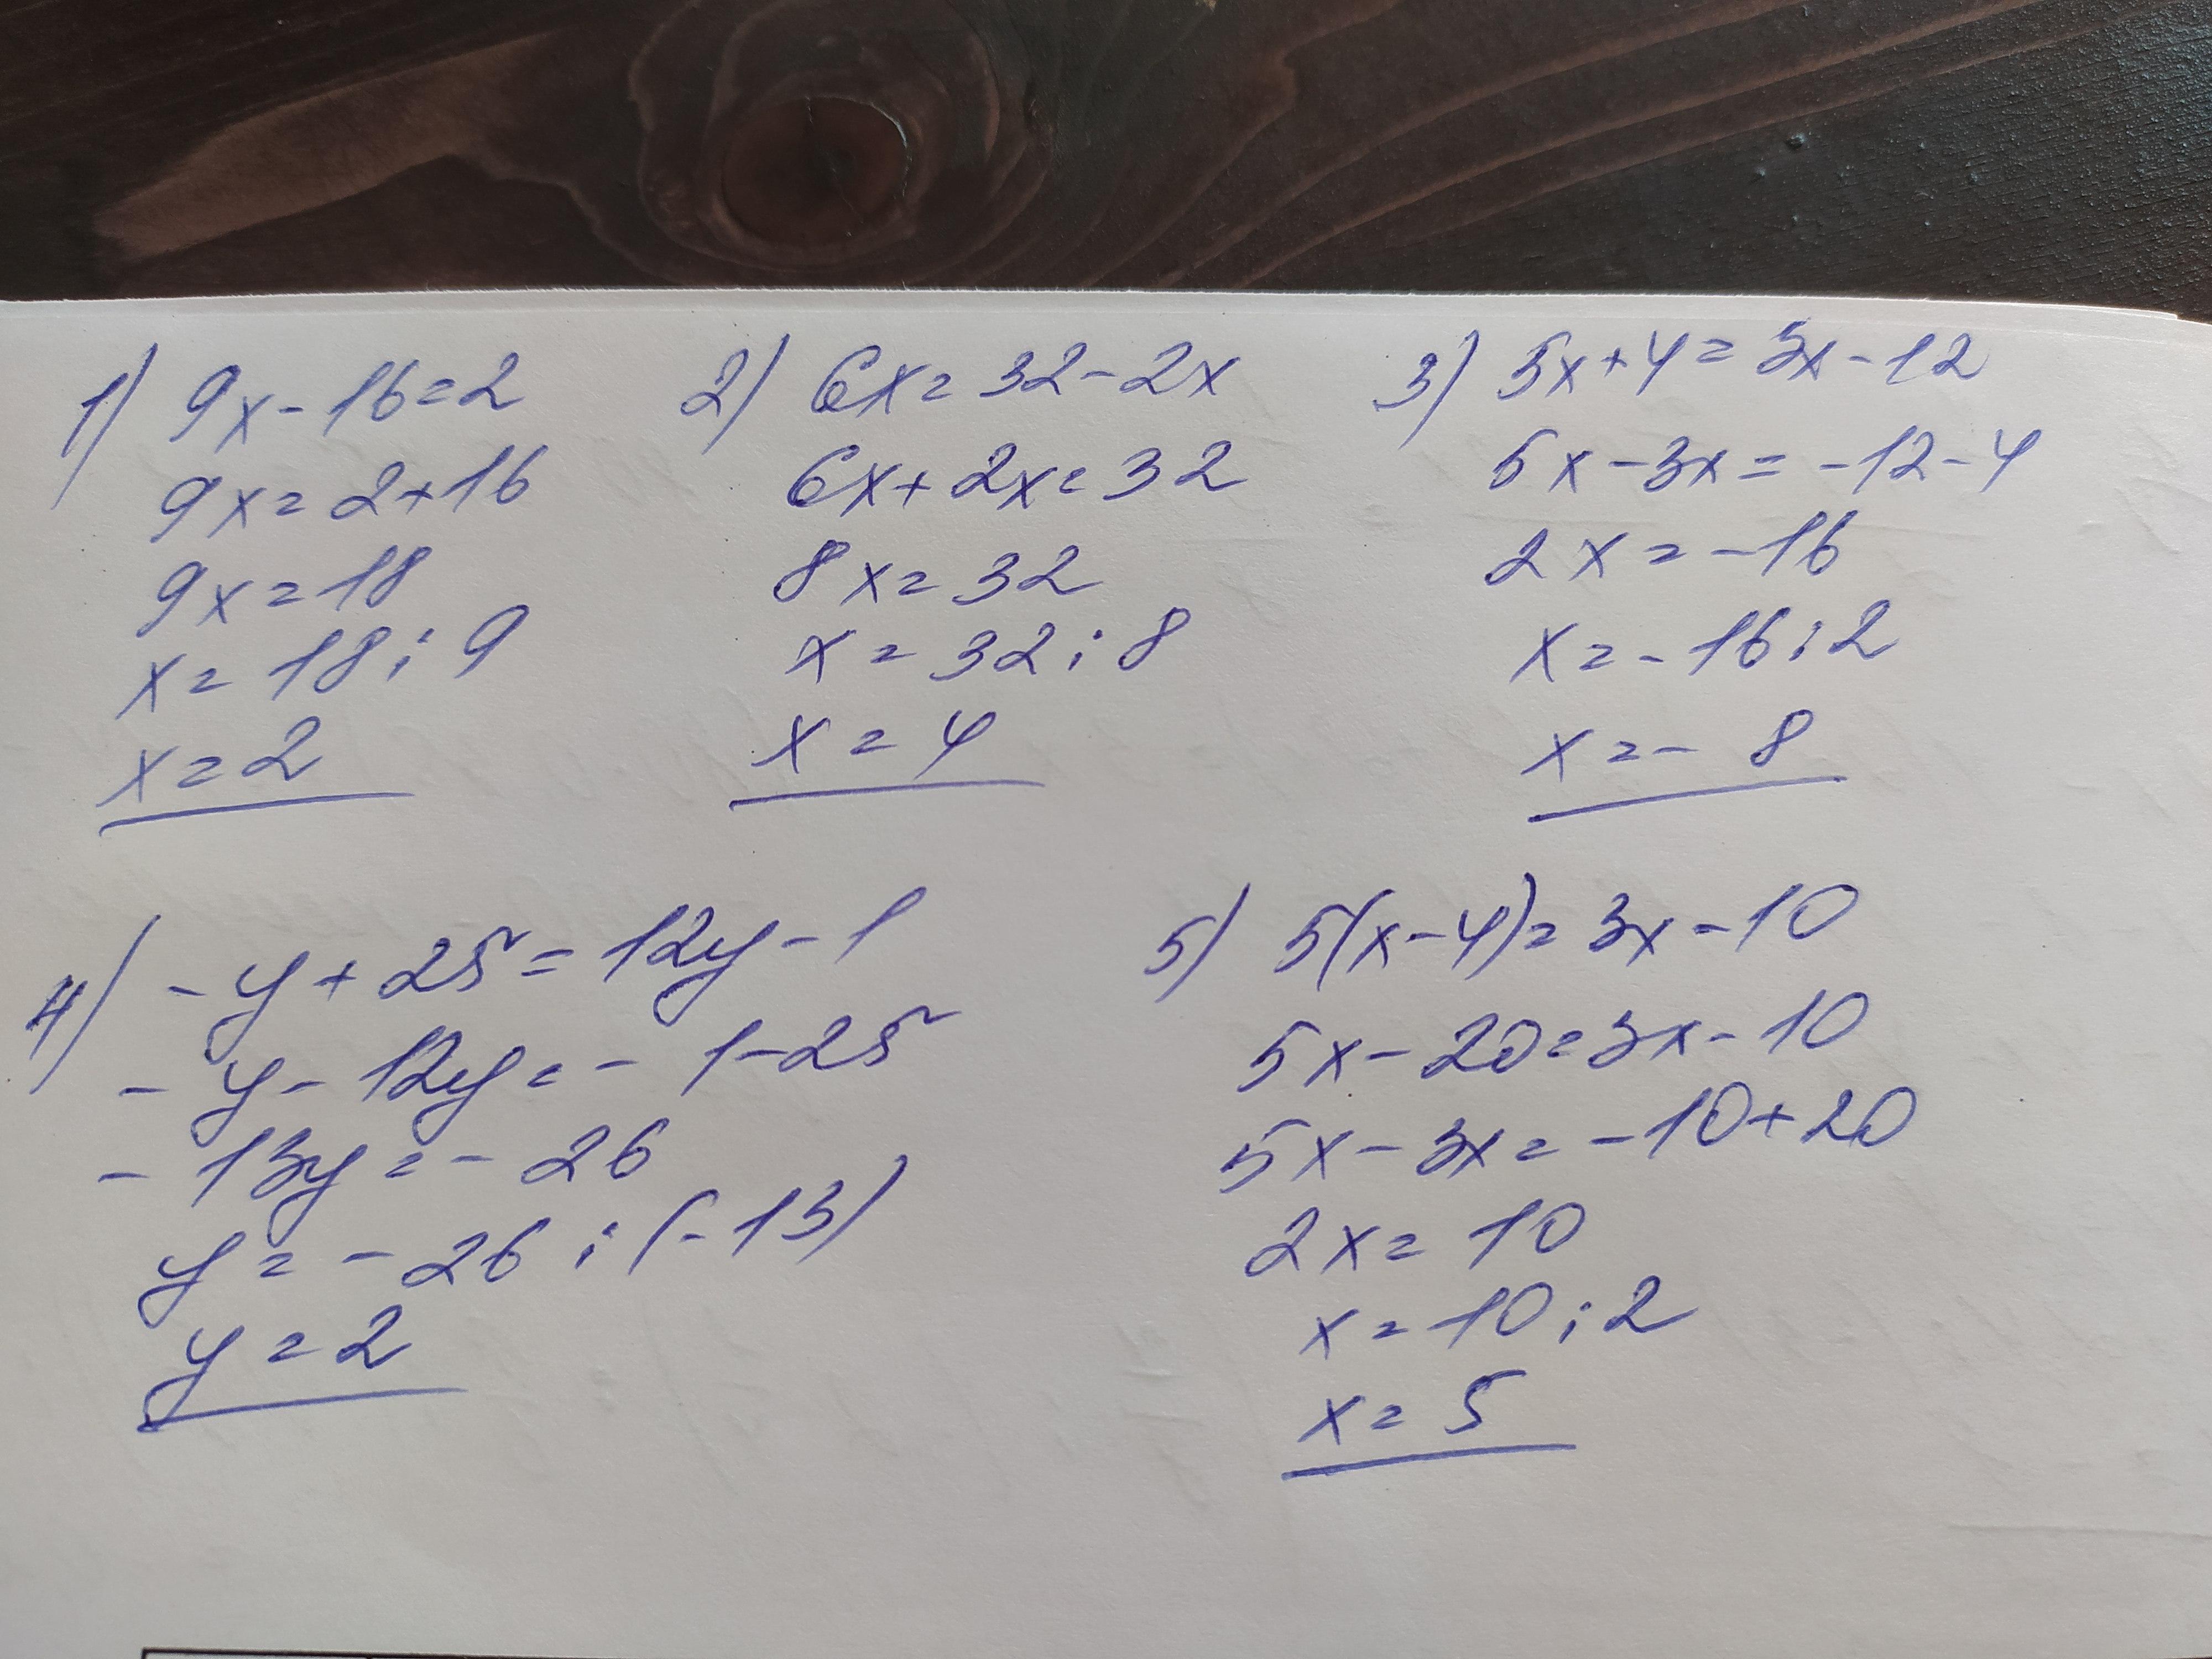 1) 9x-16=2
9x=2+16
9x=18
x=18:9
x=2
2) 6x=32-2x
6x+2x=32
8x=32
x=32:8
x=4
3) 5x+4=3x-12
5x-3x=-12-4
2x=-16
x=-16:2
x=-8
4) -y+25=12y-1
-y-12y=-1-25
-13y=-26
y=-26:(-13)
y=2
5) 5(x-4)=3x-10
5x-20=3x-10
5x-3x=-10+20
2x=10
x=10:2
x=5